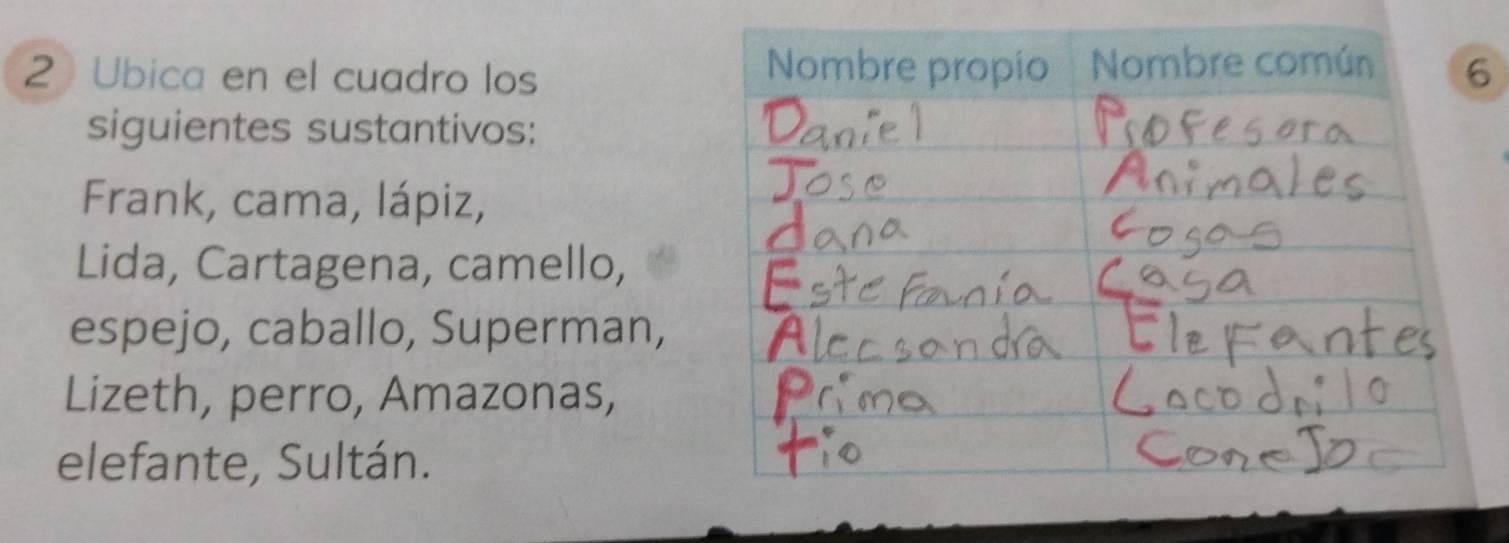 2 Ubica en el cuadro los
siguientes sustantivos:
Frank, cama, lápiz,
Lida, Cartagena, camello,
espejo, caballo, Superman,
Lizeth, perro, Amazonas,
elefante, Sultán.
Nombre propio Nombre común
Daniel Profesora
Jose Animales
dana cosas
Estefania Casa
Aleccsandra Elefantes
Prima Cocodrilo
tio ConeJo
6